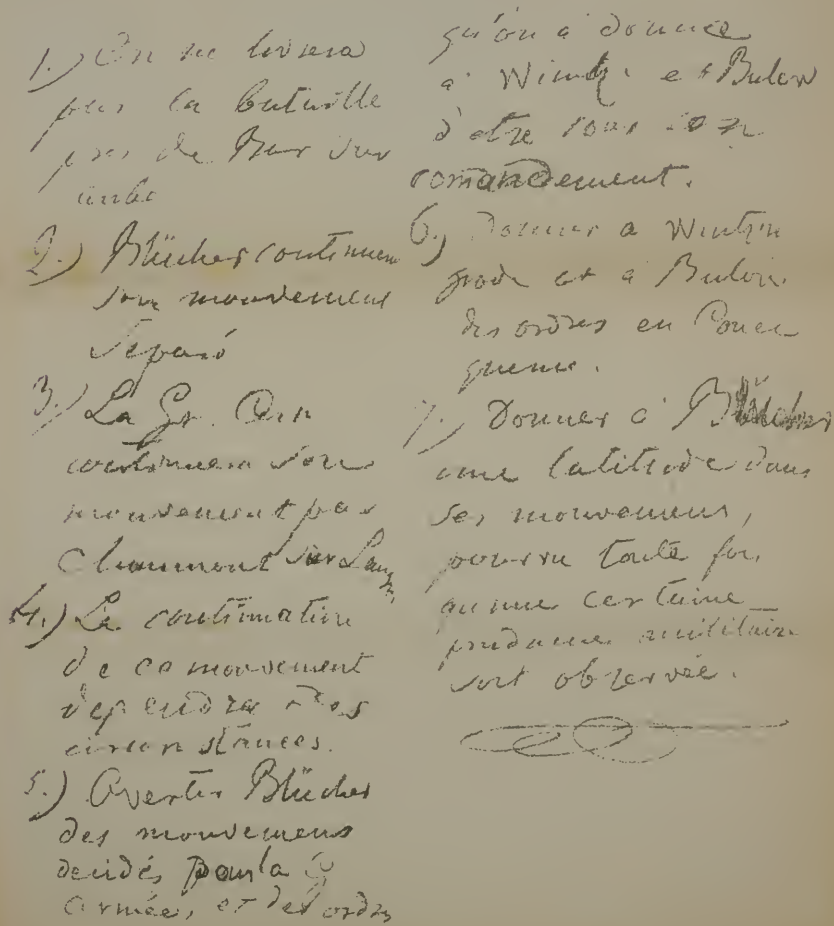 1.) On ne livrera
pas la bataille
pres de Bar sur
aube
2.) Blücher continuera
son mouvement
separé
3.) La Gr. Arm
continuera son
mouvement pas
Chaumont sur Lang
4.) La continuation
de ce mouvement
dependra des
circonstances.
5.) Avertir Blücher
des mouvemens
decidés pour la G
armée, et des ordres
qu'on a donnee
a Wintz. et Bulow
d'etre sous son
comandement.
6.) Donner a Wintzin
gode et a Bulow
des ordres en Conce
quence.
7.) Donner a Blücher
une latitude dans
ses mouvemens,
pourvu toute fois
qu'une certaine
prudence militaire
soit observée.